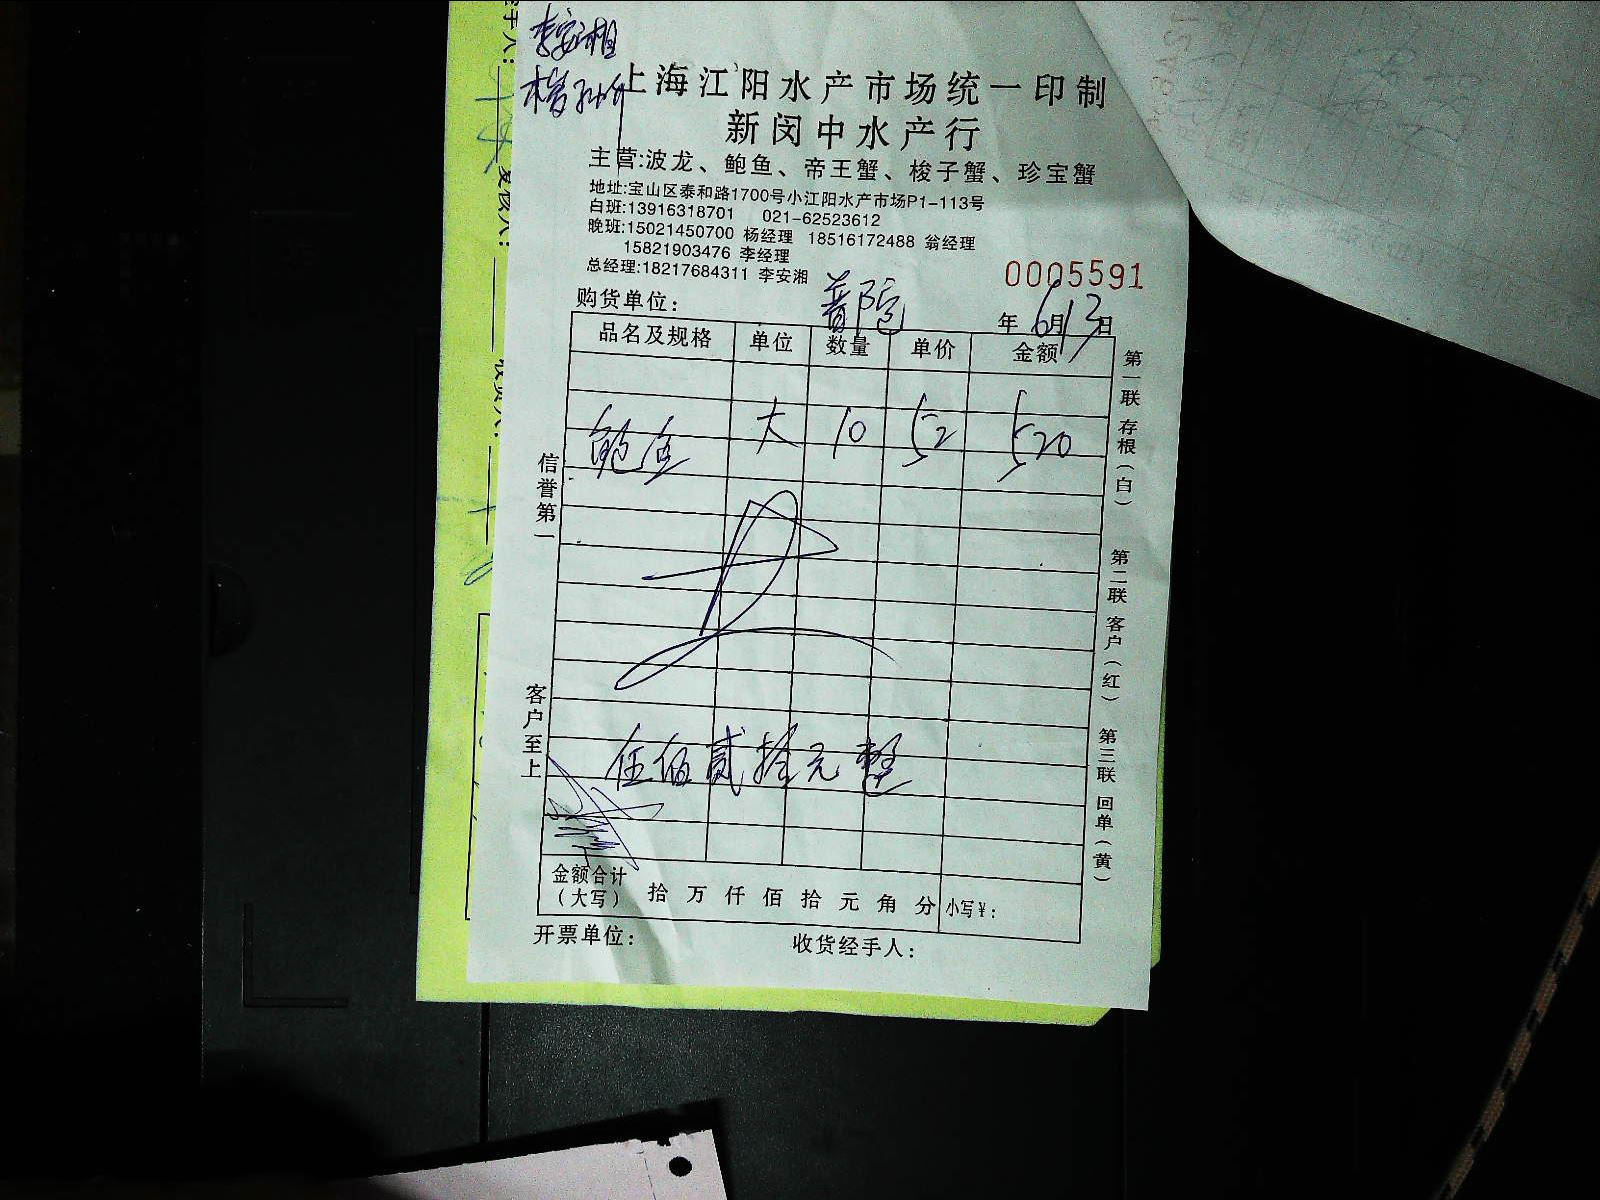 李安湘
上海江阳水产市场统一印制
新闵中水产行
主营:波龙、鲍鱼、帝王蟹、梭子蟹、珍宝蟹
地址:宝山区泰和路1700号小江阳水产市场P1-113号
白班:13916318701 021-62523612
晚班:15021450700 杨经理 18516172488 翁经理
15821903476 李经理
总经理:18217684311 李安湘
0005591
购货单位: 普陀 年 6月13日
品名及规格 单位 数量 单价 金额
鲍鱼 大 10 52 520
伍佰贰拾元整
金额合计
(大写) 拾 万 仟 佰 拾 元 角 分 小写¥:
开票单位: 收货经手人:
信誉第一
客户至上
第一联 存根(白)
第二联 客户(红)
第三联 回单(黄)